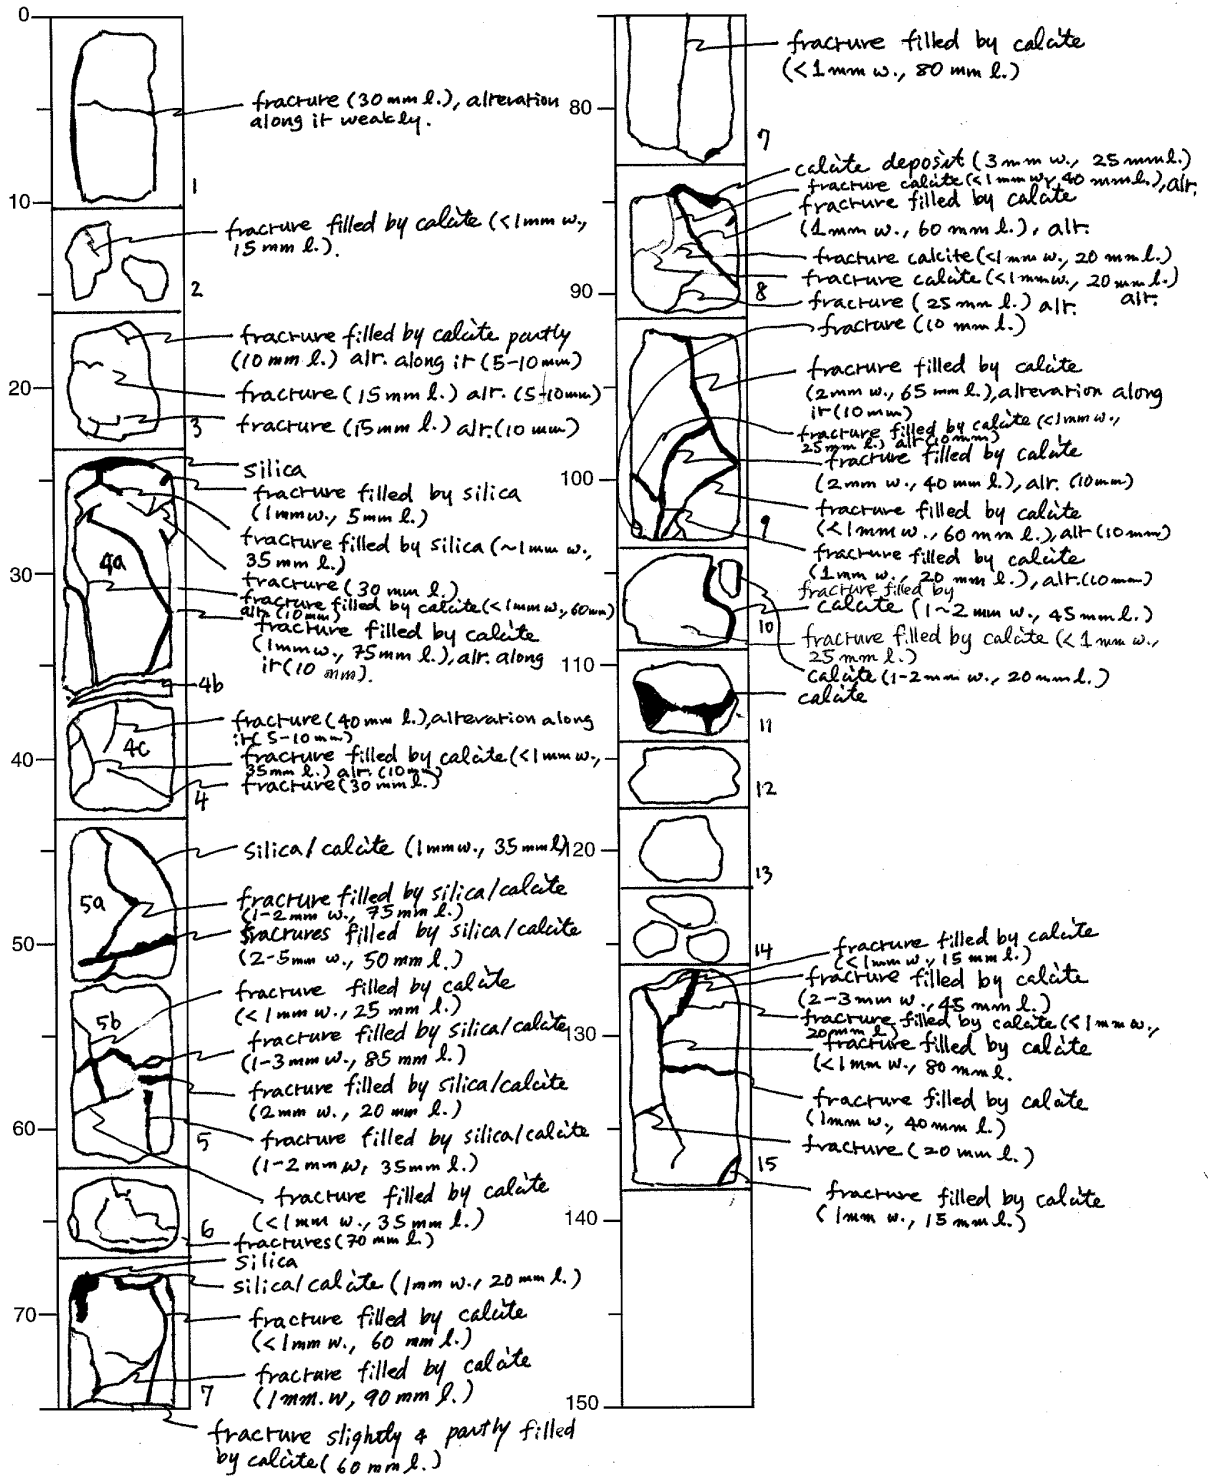 0
fracture (30 mm l.), alteration
along it weakly.
1
10
fracture filled by calcite (<1mm w.,
15 mm l.).
2
fracture filled by calcite partly
(10 mm l.) alt. along it (5-10mm)
20
fracture (15 mm l.) alt. (5-10mm)
fracture (15 mm l.) alt. (10 mm)
3
silica
fracture filled by silica
(1mm w., 5 mm l.)
fracture filled by silica (~1 mm w.,
35 mm l.)
4a
30
fracture (30 mm l.)
fracture filled by calcite (<1mm w., 60mm)
alt. (10mm)
fracture filled by calcite
(1mm w., 75 mm l.), alt. along
it (10 mm).
4b
fracture (40 mm l.), alteration along
it (5-10mm)
4c
40
fracture filled by calcite (<1mm w.,
35mm l.) alt. (10mm)
fracture (30 mm l.)
4
silica/calcite (1mm w., 35 mm l)
5a
fracture filled by silica/calcite
(1-2 mm w., 75 mm l.)
50
fractures filled by silica/calcite
(2-5mm w., 50 mm l.)
fracture filled by calcite
(<1mm w., 25 mm l.)
5b
fracture filled by silica/calcite
(1-3mm w., 85 mm l.)
fracture filled by silica/calcite
(2mm w., 20 mm l.)
60
5
fracture filled by silica/calcite
(1-2 mm w, 35 mm l.)
fracture filled by calcite
(<1mm w., 35 mm l.)
6
fractures (70 mm l.)
silica
silica/calcite (1mm w., 20 mm l.)
70
fracture filled by calcite
(<1mm w., 60 mm l.)
fracture filled by calcite
(1mm. w, 90 mm l.)
7
fracture slightly & partly filled
by calcite (60 mm l.)
fracture filled by calcite
(<1mm w., 80 mm l.)
80
7
calcite deposit (3 mm w., 25 mm l.)
fracture calcite (<1mm w, 40 mm l.), alt.
fracture filled by calcite
(1mm w., 60 mm l.), alt.
fracture calcite (<1mm w., 20 mm l.)
fracture calcite (<1mm w., 20 mm l.)
alt.
90
8
fracture (25 mm l.) alt.
fracture (10 mm l.)
fracture filled by calcite
(2mm w., 65 mm l.), alteration along
it (10 mm)
fracture filled by calcite (<1mm w.,
25mm l.) alt (10mm)
fracture filled by calcite
100
(2mm w., 40 mm l.), alt. (10mm)
fracture filled by calcite
(<1mm w., 60 mm l.), alt (10mm)
9
fracture filled by calcite
(1mm w., 20 mm l.), alt. (10mm)
fracture filled by
calcite (1~2 mm w., 45mm l.)
10
fracture filled by calcite (<1 mm w.,
25 mm l.)
110
calcite (1-2mm w., 20mm l.)
calcite
11
12
120
13
14
fracture filled by calcite
(<1mm w, 15 mm l.)
fracture filled by calcite
(2-3mm w., 45 mm l.)
fracture filled by calcite (<1mm w.,
20mm l)
130
fracture filled by calcite
(<1mm w., 80 mm l.
fracture filled by calcite
(1mm w., 40 mm l.)
fracture (20 mm l.)
15
fracture filled by calcite
(1mm w., 15 mm l.)
140
150